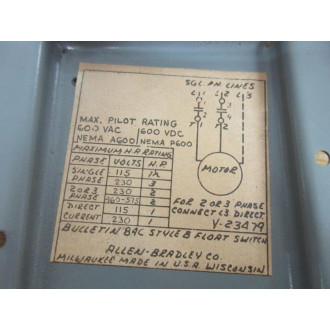 SGL. PH. LINES
L1 L2 L3
1 3
2 4
T1 T2
MOTOR
MAX. PILOT RATING
600 VAC 600 VDC
NEMA A600 NEMA P600
MAXIMUM H.P. RATING
PHASE VOLTS H.P.
SINGLE 115 1½
PHASE 230 3
2 OR 3 230 2
PHASE 460-575 2
DIRECT 115 1
CURRENT 230 1
FOR 2 OR 3 PHASE
CONNECT L3 DIRECT
Y-23479
BULLETIN 84C STYLE B FLOAT SWITCH
ALLEN-BRADLEY CO.
MILWAUKEE MADE IN U.S.A. WISCONSIN